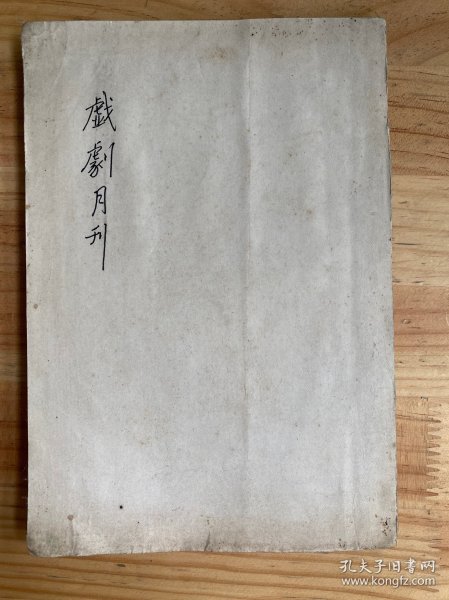 戯劇月刊
孔夫子旧書网
www.kongfz.com